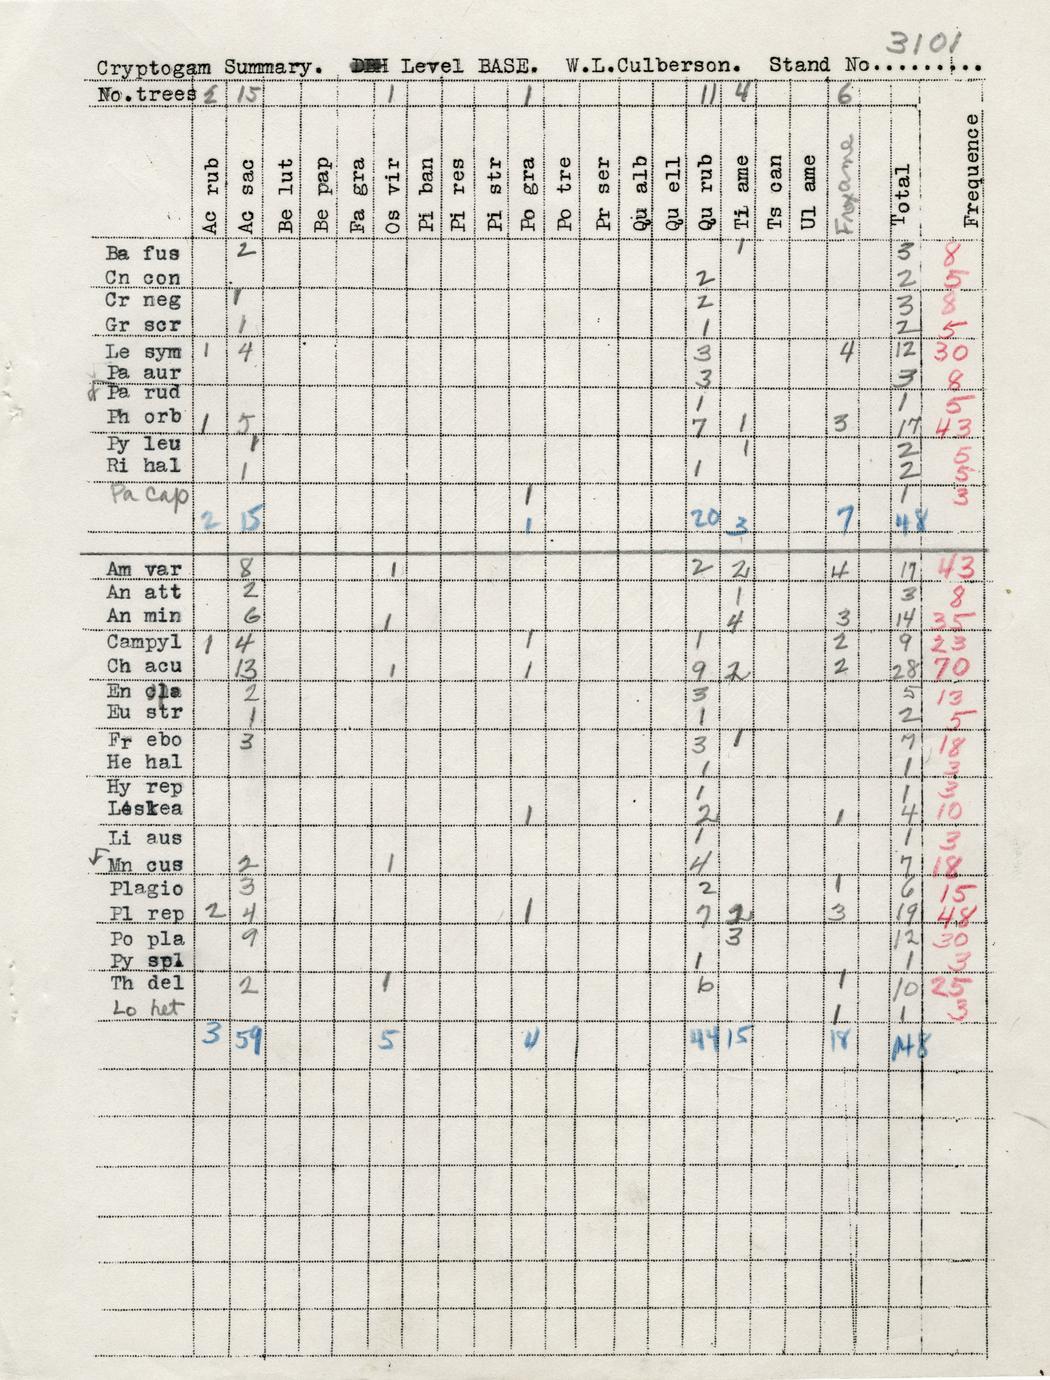 3101
Cryptogam Summary. DBH Level BASE. W.L.Culberson. Stand No.........
No.trees 2 15 1 1 11 4 6
Ac rub Ac sac Be lut Be pap Fa gra Os vir Pi ban Pi res Pi str Po gra Po tre Pr ser Qu alb Qu ell Qu rub Ti ame Ts can Ul ame Frax ame Total Frequence
Ba fus 2 1 3 8
Cn con 2 2 5
Cr neg 1 2 3 8
Gr scr 1 1 2 5
Le sym 1 4 3 4 12 30
Pa aur 3 3 8
Pa rud 1 1 5
Ph orb 1 5 7 1 3 17 43
Py leu 1 1 2 5
Ri hal 1 1 2 5
Pa cap 1 1 3
2 15 1 20 3 7 48
Am var 8 1 2 2 4 17 43
An att 2 1 3 8
An min 6 1 4 3 14 35
Campyl 1 4 1 1 2 9 23
Ch acu 13 1 1 9 2 2 28 70
En cla 2 3 5 13
Eu str 1 1 2 5
Fr ebo 3 3 1 7 18
He hal 1 1 3
Hy rep 1 1 3
Leskea 1 2 1 4 10
Li aus 1 1 3
Mn cus 2 1 4 7 18
Plagio 3 2 1 6 15
Pl rep 2 4 1 7 2 3 19 48
Po pla 9 3 12 30
Py spl 1 1 3
Th del 2 1 6 1 10 25
Lo het 1 1 3
3 59 5 4 44 15 18 148